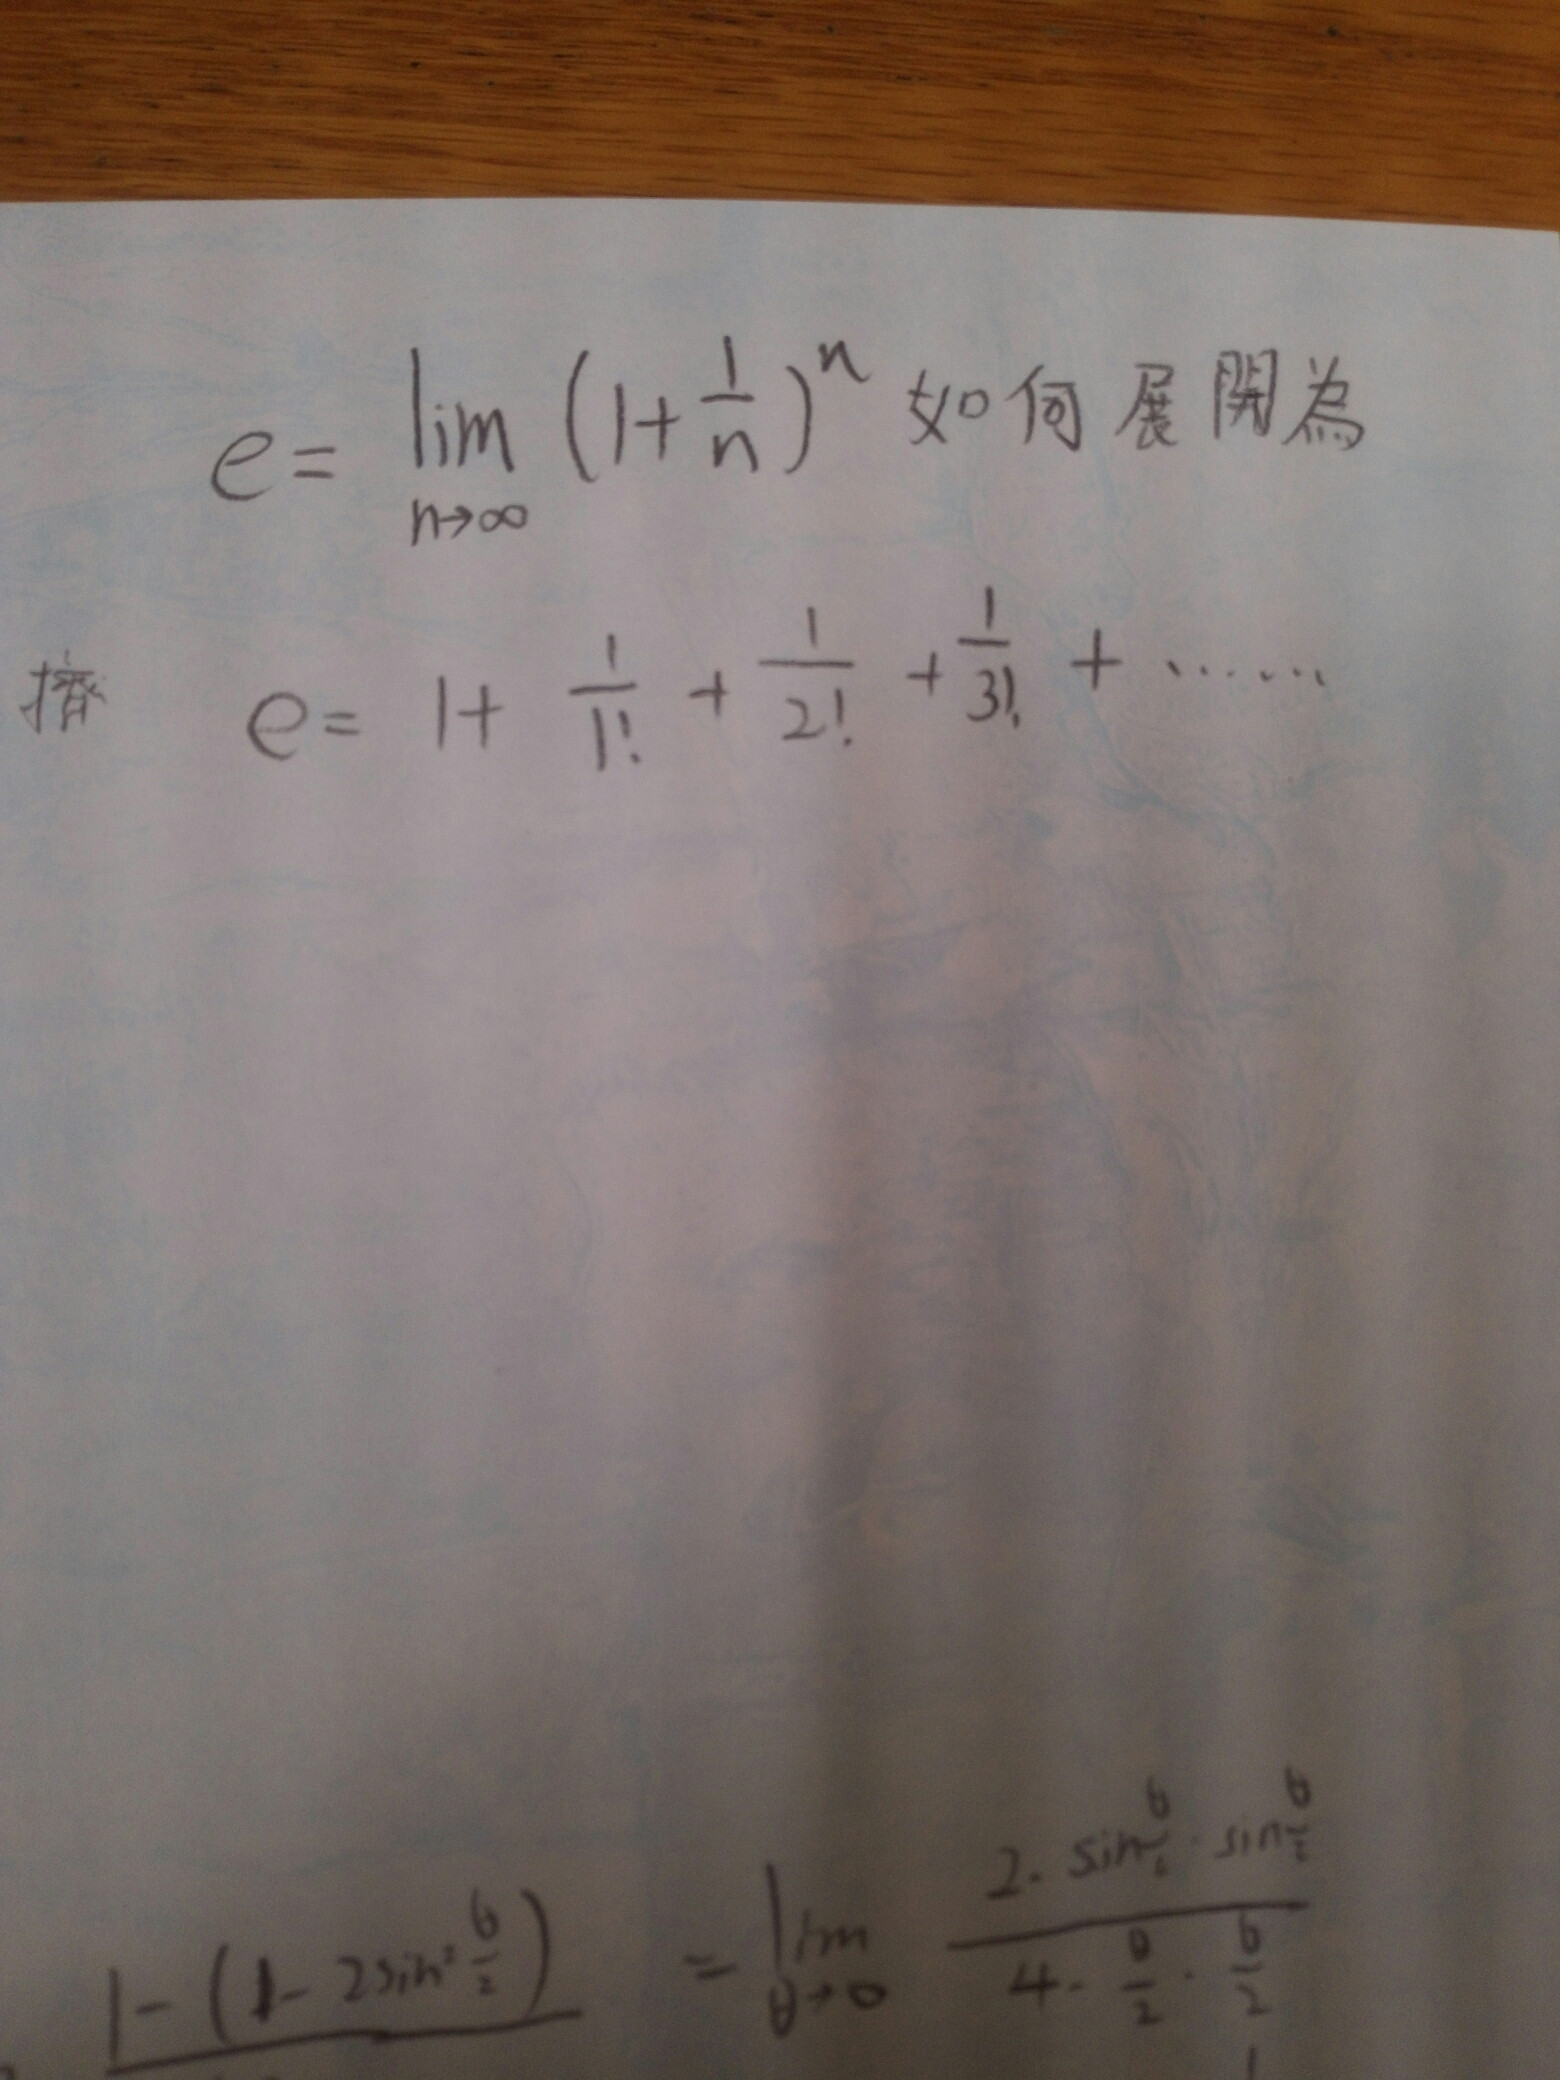 e = lim (1 + 1/n)^n 如何展開為
n→∞
擠 e = 1 + 1/1! + 1/2! + 1/3! + ......
1 - (1 - 2sin² θ/2) = lim 2 · sin θ/2 · sin θ/2
θ→0 4 · θ/2 · θ/2